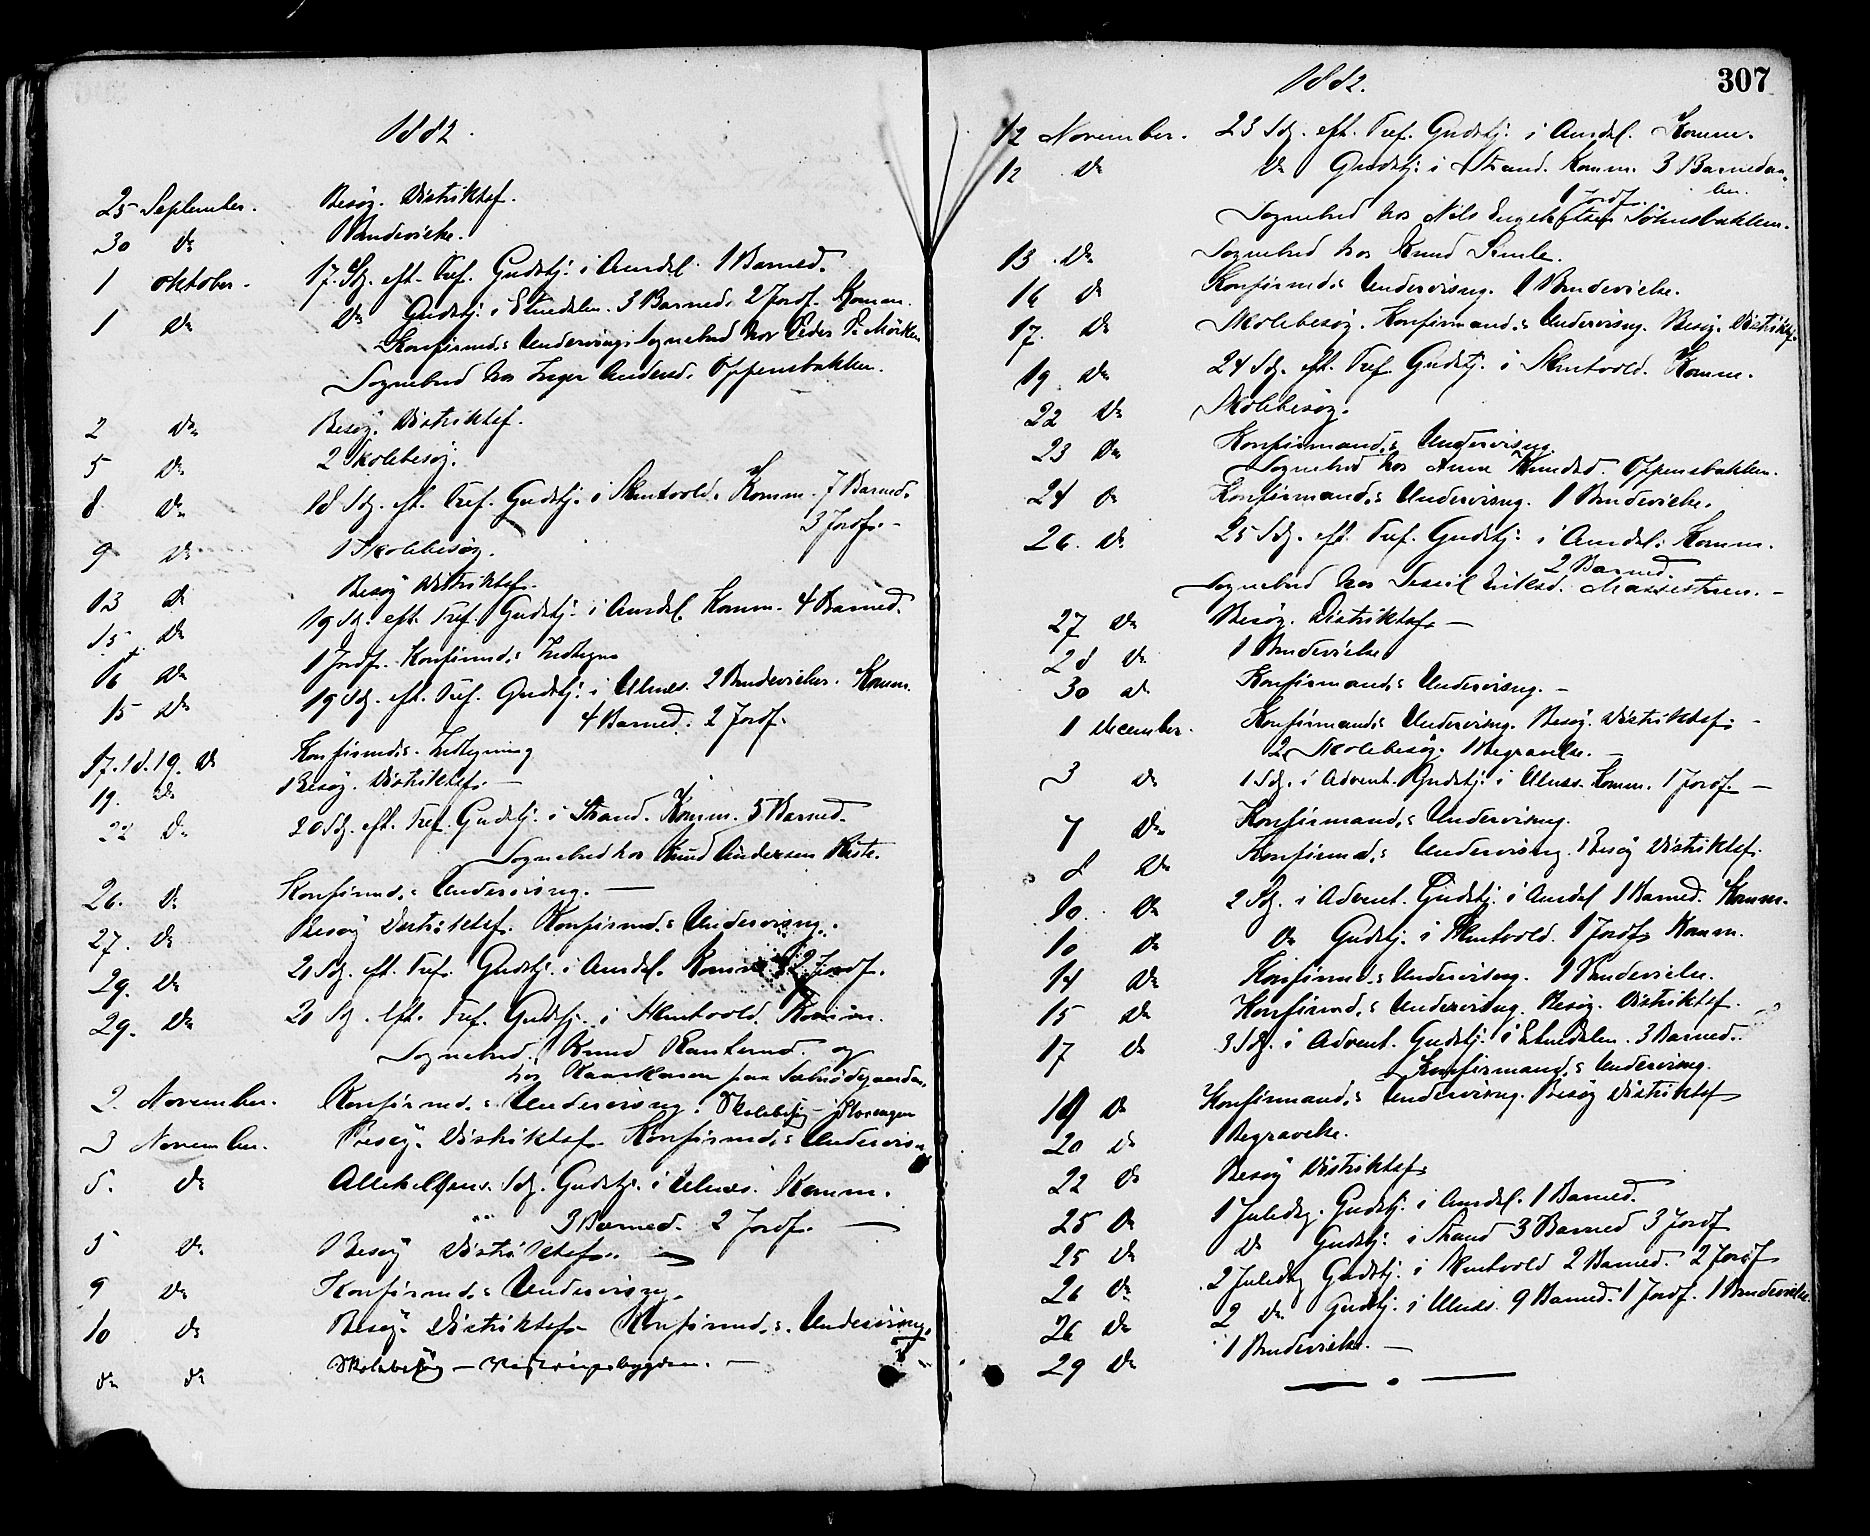 1882.
25 September. Besøg. Distriktsf.
30 Do 1 Brudevielse.
1 oktober. 17. Sdg. eft. Tref. Gudstj. i Aurdal. 1 Barned.
1 Do Do Gudstj. i Etnedalen. 3 Barned. 2 Jordf. Komm.
Konfirmd.s Undervisng. Sognebud hos Peder P.
Sognebud hos Inger Andersd. Oppensbakken.
2 Do Besøg. Distriktsf.
5 Do 2 Skolebesøg.
8 Do 18 Sdg. eft. Tref. Gudstj. i Skrutvold. Komm. 7 Barned.
3 Jordf. -
9 Do 1 Skolebesøg.
13 Do Besøg Distriktsf.
15 Do 19 Sdg. eft. Tref. Gudstj. i Aurdal. Komm. 4 Barned.
16 Do 1 Jordf. Konfirmd.s
15 Do 19 Sdg. eft. Tref. Gudstj. i Ulnes. 2 Brudevielser. Komm.
4 Barned. 2 Jordf.
17. 18. 19. Do Konfirmd.s
19. Do 1 Besøg. Distriktsf. —
22 Do 20 Sdg. eft. Tref. Gudstj. i Strand. Komm. 5 Barned.
Sognebud hos Knud Andersen
26. Do Konfirmd.s Undervisng. —
27. Do Besøg Distriktsf. Konfirmd.s Undervisng.
29. Do 21 Sdg. eft. Tref. Gudstj. i Aurdal. Komm. 2 Jordf.
29. Do 21 Sdg. eft. Tref. Gudstj. i Skrutvold. Komm.
Sognebud. Knud og
hos paa
2. November. Konfirmd.s Undervisng. Skolebesøg -
3 November. Besøg. Distriktsf. Konfirmd.s Undervisn
5. Do Allehelgens. Sdg. Gudstj. i Ulnes. Komm.
3 Barned. 2 Jordf. —
5 Do Besøg Distriktsf. —
9 Do Konfirmd.s Undervisng.
10 Do Besøg. Distriktsf. Konfirmd.s Undervisng.
Do Do Skolebesøg —
1882.
307
12 November. 23 Sdg. eft. Tref. Gudstj. i Aurdal. Komm.
12 Do Do Gudstj. i Strand. Komm. 3 Barnedaa-
ber.
1 Jordf.
Sognebud hos Nils
13 Do Sognebud hos Knud Semle.
16 Do Konfirmd.s Undervisng. 1 Brudevielse.
17. Do Skolebesøg. Konfirmand.s Undervisng. Besøg. Distriktsf.
19 Do 24 Sdg. eft. Tref. Gudstj. i Skrutvold. Komm.
22 Do Skolebesøg.
23 Do Konfirmand.s Undervisng
Sognebud hos Anne Knudsd. Oppensbakken.
24 Do Konfirmand.s Undervisng. 1 Brudevielse.
26. Do 25 Sdg. eft. Tref. Gudstj. i Aurdal. Komm.
2 Barned.
Sognebud hos Eriksd.
27 Do Besøg. Distriktsf. —
28 Do 1 Brudevielse
30 Do Konfirmand.s Undervisng. -
1 December. Konfirmand.s Undervisng. Besøg. Distriktsf. -
2 Skolebesøg. 1 Begravelse. —
3 Do 1 Sdg. i Advent. Gudstj. i Ulnes. Komm. 1 Jordf. —
7 Do Konfirmand.s Undervisng.
8 Do Konfirmd.s Undervisng. Besøg Distriktsf.
10. Do 2 Sdg. i Advent. Gudstj. i Aurdal 1 Barned. Komm.
10 Do Do Gudstj. i Skrutvold. 1 Jordf. Komm.
14 Do Konfirmd.s Undervisng. 1 Brudevielse.
15 Do Konfirmd.s Undervisng. Besøg. Distriktsf.
17 Do 3 Sdg. i Advent. Gudstj. i Etnedalen. 3 Barned.
Konfirmand.s Undervisng.
19 Do Konfirmand.s Undervisng. Besøg Distriktsf
20 Do 1 Begravelse.
22 Do Besøg Distriktsf.
25 Do 1 Juledag. Gudstj. i Aurdal. 1 Barned.
25 Do Do Gudstj. i Strand 3 Barned 3 Jordf
26 Do 2 Juledag Gudstj. i Skrutvold 2 Barned. 2 Jordf
26 Do 2 Do Gudstj. i Ulnes. 9 Barned. 1 Jordf. 1 Brudevielse
29 Do 1 Brudevielse. —